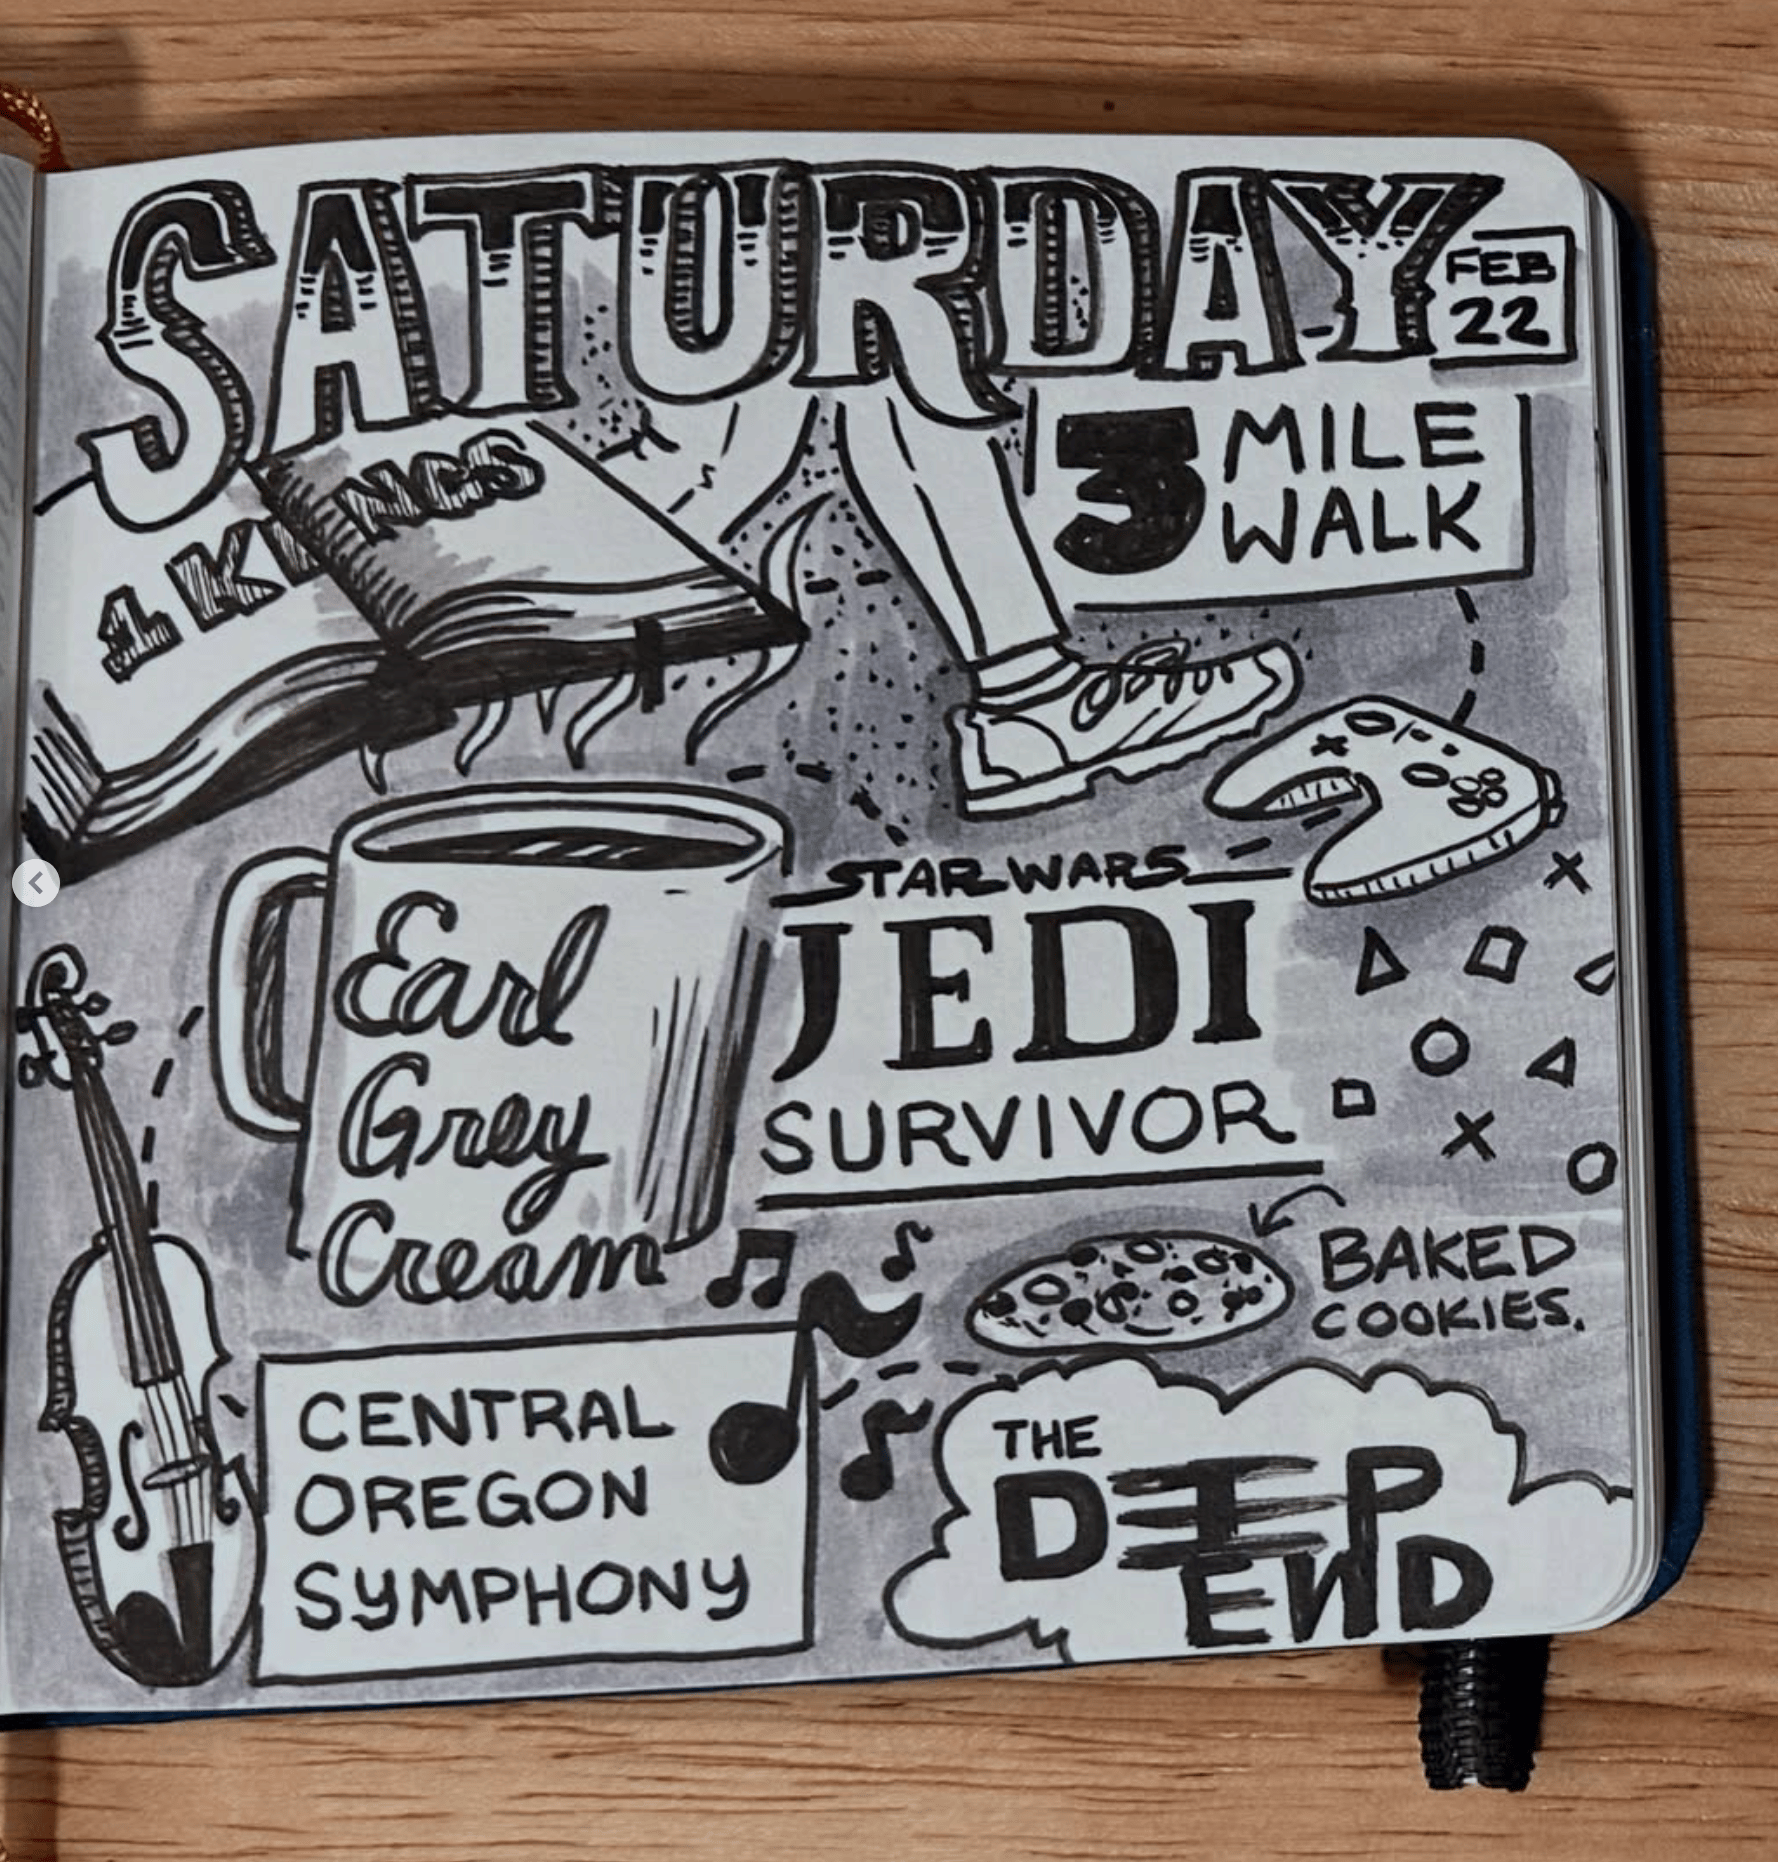 SATURDAY
FEB
22
1 KINGS
3 MILE
WALK
Earl
Grey
Cream
STAR WARS
JEDI
SURVIVOR
BAKED
COOKIES.
CENTRAL
OREGON
SYMPHONY
THE
DEEP
END